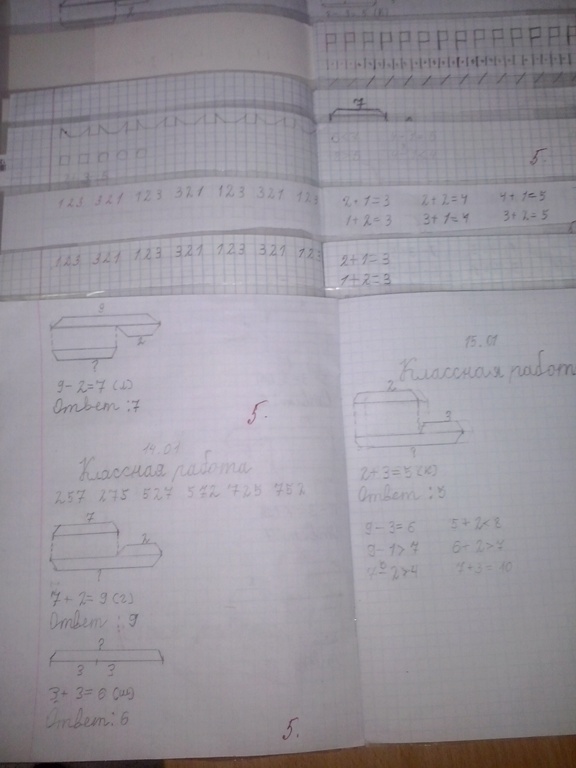 7
5.
123 321 123 321 123 321 123
2+1=3 2+2=4 4+1=5
1+2=3 3+1=4 3+2=5
123 321 123 321 123 321 123
2+1=3
1+2=3
9
2
?
9-2=7
Ответ: 7
5.
14.01
Классная работа
257 275 527 572 725 752
7
2
?
7+2=9 (г)
Ответ: 9
?
3 3
3+3=6
Ответ: 6
5.
15.01
Классная работ
2
3
?
2+3=5 (к)
Ответ: 5
9-3=6 5+2<8
9-1>7 6-2>
7+3=10